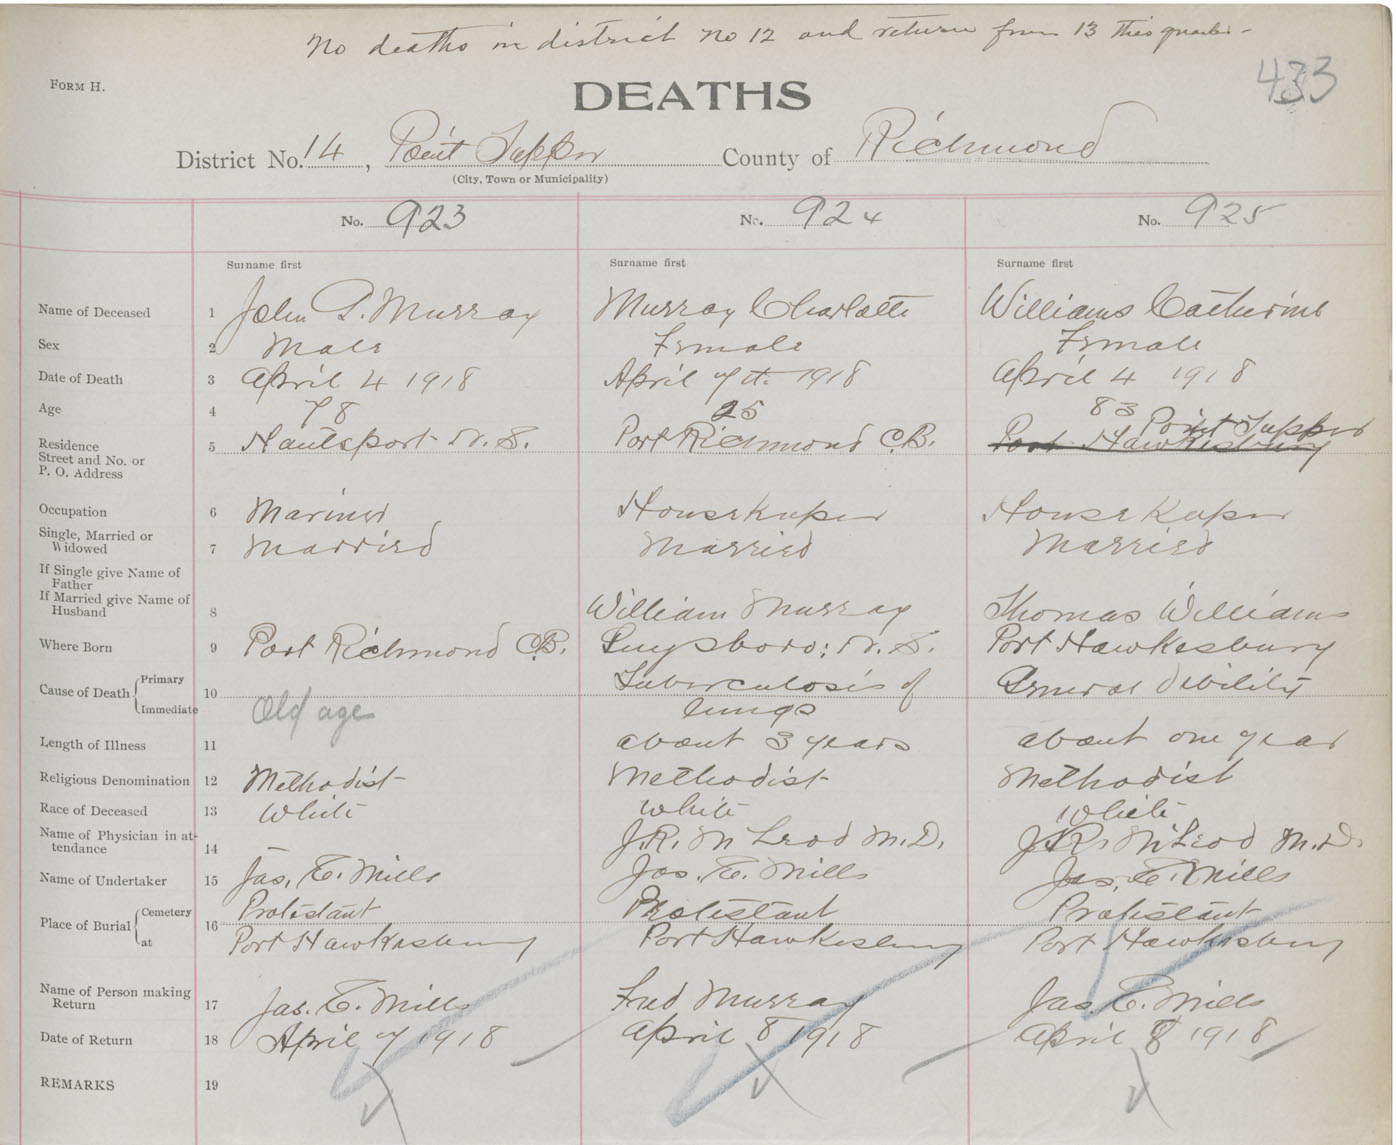 No deaths in district No 12 and return from 13 this quarter -
433
FORM H.
DEATHS
District No. 14, Point Tupper County of Richmond
(City, Town or Municipality)
No. 923 No. 924 No. 925
Surname first Surname first Surname first
Name of Deceased 1 John P. Murray Murray Charlotte Williams Catherine
Sex 2 Male Female Female
Date of Death 3 April 4 1918 April 7th 1918 April 4 1918
Age 4 78 25 83
Point Tupper
Residence
Street and No. or
P. O. Address 5 Hantsport N. S. Port Richmond C.B. Port Hawkesbury
Occupation 6 Mariner Housekeeper Housekeeper
Single, Married or
Widowed 7 Married Married Married
If Single give Name of
Father
If Married give Name of
Husband 8 William Murray Thomas Williams
Where Born 9 Port Richmond C.B. Guysboro: N. S. Port Hawkesbury
Cause of Death Primary 10 Tuberculosis of General debility
Immediate Old age lungs
Length of Illness 11 about 3 years about one year
Religious Denomination 12 Methodist Methodist Methodist
Race of Deceased 13 White White White
Name of Physician in at-
tendance 14 J.R. McLeod M.D. J.R. McLeod M.D.
Name of Undertaker 15 Jas. E. Mills Jas. E. Mills Jas. E. Mills
Place of Burial Cemetery 16 Protestant Protestant Protestant
at Port Hawkesbury Port Hawkesbury Port Hawkesbury
Name of Person making
Return 17 Jas. E. Mills Fred Murray Jas. E. Mills
Date of Return 18 April 7 1918 April 8 1918 April 8 1918
REMARKS 19